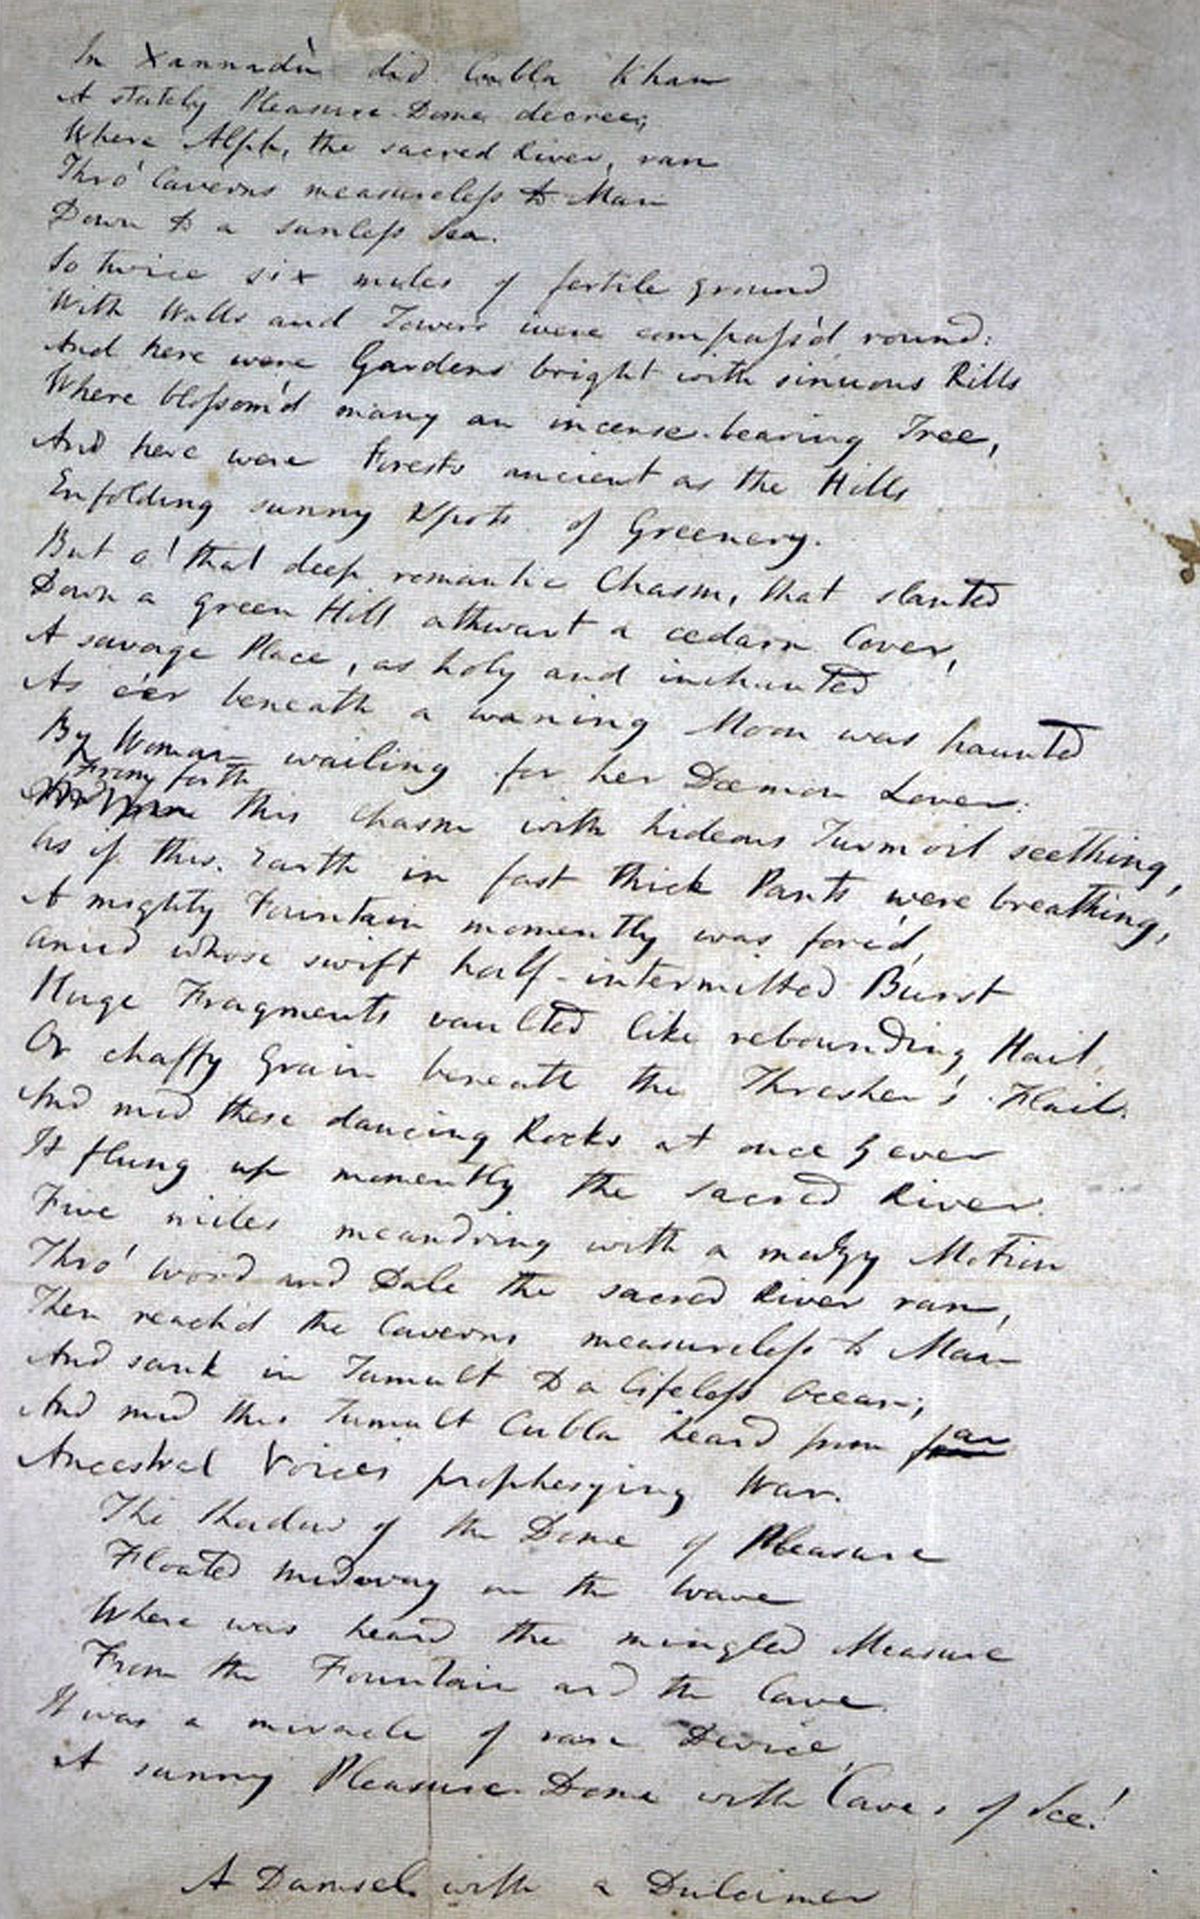 In Xannadù did Cubla Khan
A stately Pleasure-Dome decree;
Where Alph, the sacred River, ran
Thro' Caverns measureless to Man
Down to a sunless Sea.
So twice six miles of fertile ground
With Walls and Towers were compass'd round:
And here were Gardens bright with sinuous Rills
Where blossom'd many an incense-bearing Tree,
And here were Forests ancient as the Hills
Enfolding sunny Spots of Greenery.
But o! that deep romantic Chasm, that slanted
Down a green Hill athwart a cedarn Cover,
A savage Place, as holy and inchanted
As e'er beneath a waning Moon was haunted
By Woman wailing for her Dæmon Lover:
From forth this Chasm with hideous Turmoil seething,
As if this Earth in fast thick Pants were breathing,
A mighty Fountain momently was forc'd,
Amid whose swift half-intermitted Burst
Huge Fragments vaulted like rebounding Hail,
Or chaffy Grain beneath the Thresher's Flail.
And mid these dancing Rocks at once & ever
It flung up momently the sacred River.
Five miles meandring with a mazy Motion
Thro' Wood and Dale the sacred River ran,
Then reach'd the Caverns measureless to Man
And sank in Tumult to a lifeless Ocean;
And mid this Tumult Cubla heard from far
Ancestral Voices prophesying War.
The Shadow of the Dome of Pleasure
Floated midway on the Wave
Where was heard the mingled Measure
From the Fountain and the Cave.
It was a miracle of rare Device,
A sunny Pleasure-Dome with Caves of Ice!
A Damsel with a Dulcimer